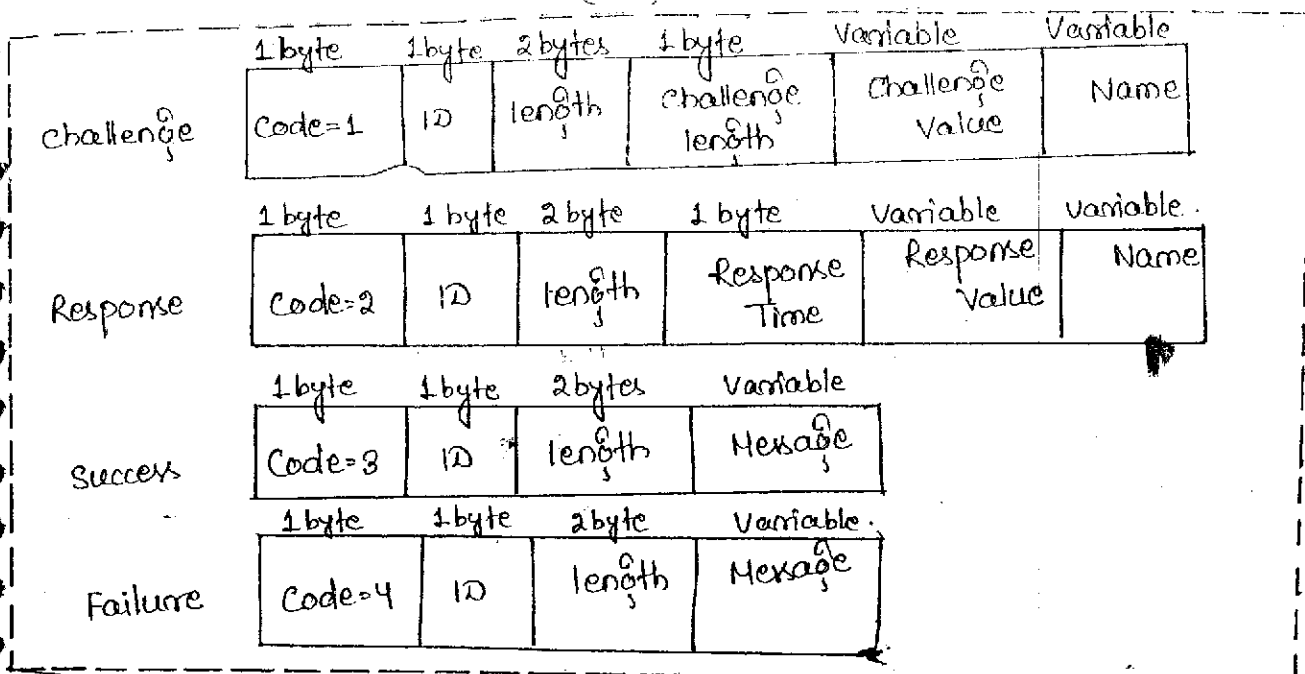 1 byte 1 byte 2 bytes 1 byte Variable Variable
Challenge Code=1 ID length Challenge length Challenge Value Name
1 byte 1 byte 2 byte 1 byte Variable Variable.
Response Code=2 ID length Response Time Response Value Name
1 byte 1 byte 2 bytes Variable
Success Code=3 ID length Message
1 byte 1 byte 2 byte Variable.
Failure Code=4 ID length Message